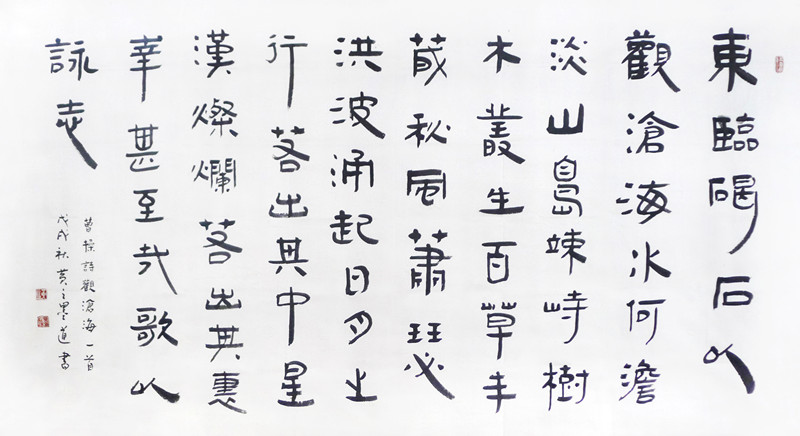 東臨碣石以
觀滄海水何澹
淡山島竦峙樹
木叢生百草丰
茂秋風蕭瑟
洪波涌起日月之
行若出其中星
漢燦爛若出其裏
幸甚至哉歌以
詠志
曹操詩觀滄海一首
戊戌秋黃之墨道書